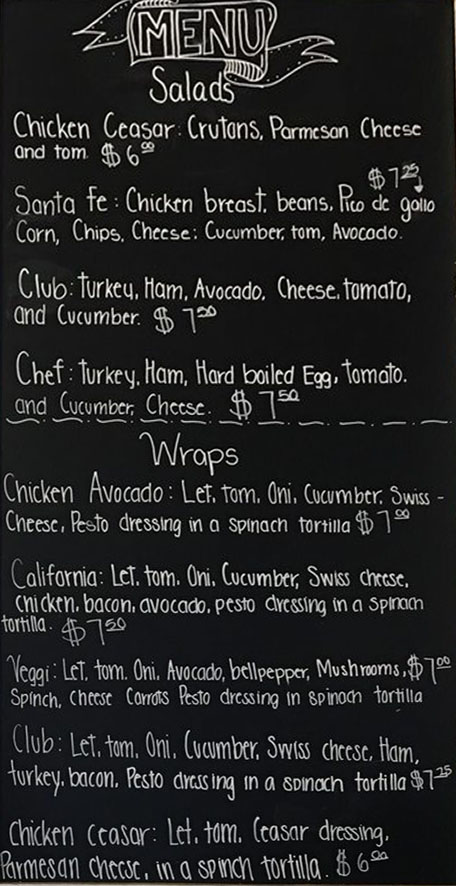 MENU
Salads
Chicken Ceasar: Crutons, Parmesan Cheese
and tom $6.00
$7.25
Santa Fe: Chicken breast, beans, Pico de gallo
Corn, Chips, Cheese: Cucumber, tom, Avocado.
Club: Turkey, Ham, Avocado, Cheese, tomato,
and Cucumber. $7.50
Chef: Turkey, Ham, Hard boiled Egg, tomato.
and Cucumber, Cheese. $7.50
Wraps
Chicken Avocado: Let, tom, Oni, Cucumber, Swiss -
Cheese, Pesto dressing in a spinach tortilla $7.00
California: Let, tom, Oni, Cucumber, Swiss cheese,
chicken, bacon, avocado, pesto dressing in a spinach
tortilla. $7.50
Veggi: Let, tom, Oni, Avocado, bellpepper, Mushrooms, $7.00
Spinch, Cheese Carrots Pesto dressing in spinach tortilla
Club: Let, tom, Oni, Cucumber, Swiss cheese, Ham,
turkey, bacon, Pesto dressing in a spinach tortilla $7.25
Chicken ceasar: Let, tom, Ceasar dressing,
Parmesan cheese, in a spinch tortilla. $6.00